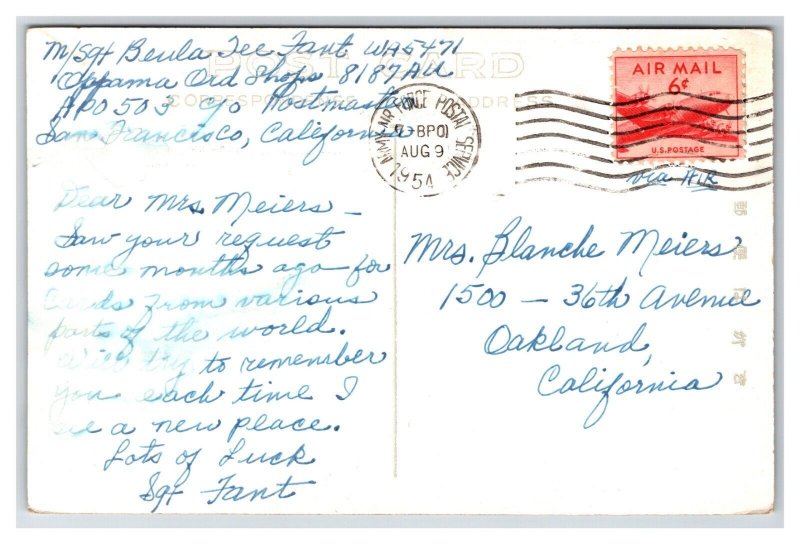 M/Sgt Beula Tee Fant WA5471
Oppama Ord Shops 8187 AU
APO 503 c/o Postmaster
San Francisco, California
POST CARD
CORRESPONDENCE
ADDRESS
ARMY-AIR FORCE POSTAL SERVICE
AUG 9
1954
AIR MAIL
6¢
U.S. POSTAGE
via AIR
Dear Mrs. Meiers –
Saw your request
some months ago for
Cards from various
parts of the world.
Will try to remember
you each time I
see a new place.
Lots of Luck
Sgt Fant
Mrs. Blanche Meiers
1500 – 36th Avenue
Oakland,
California